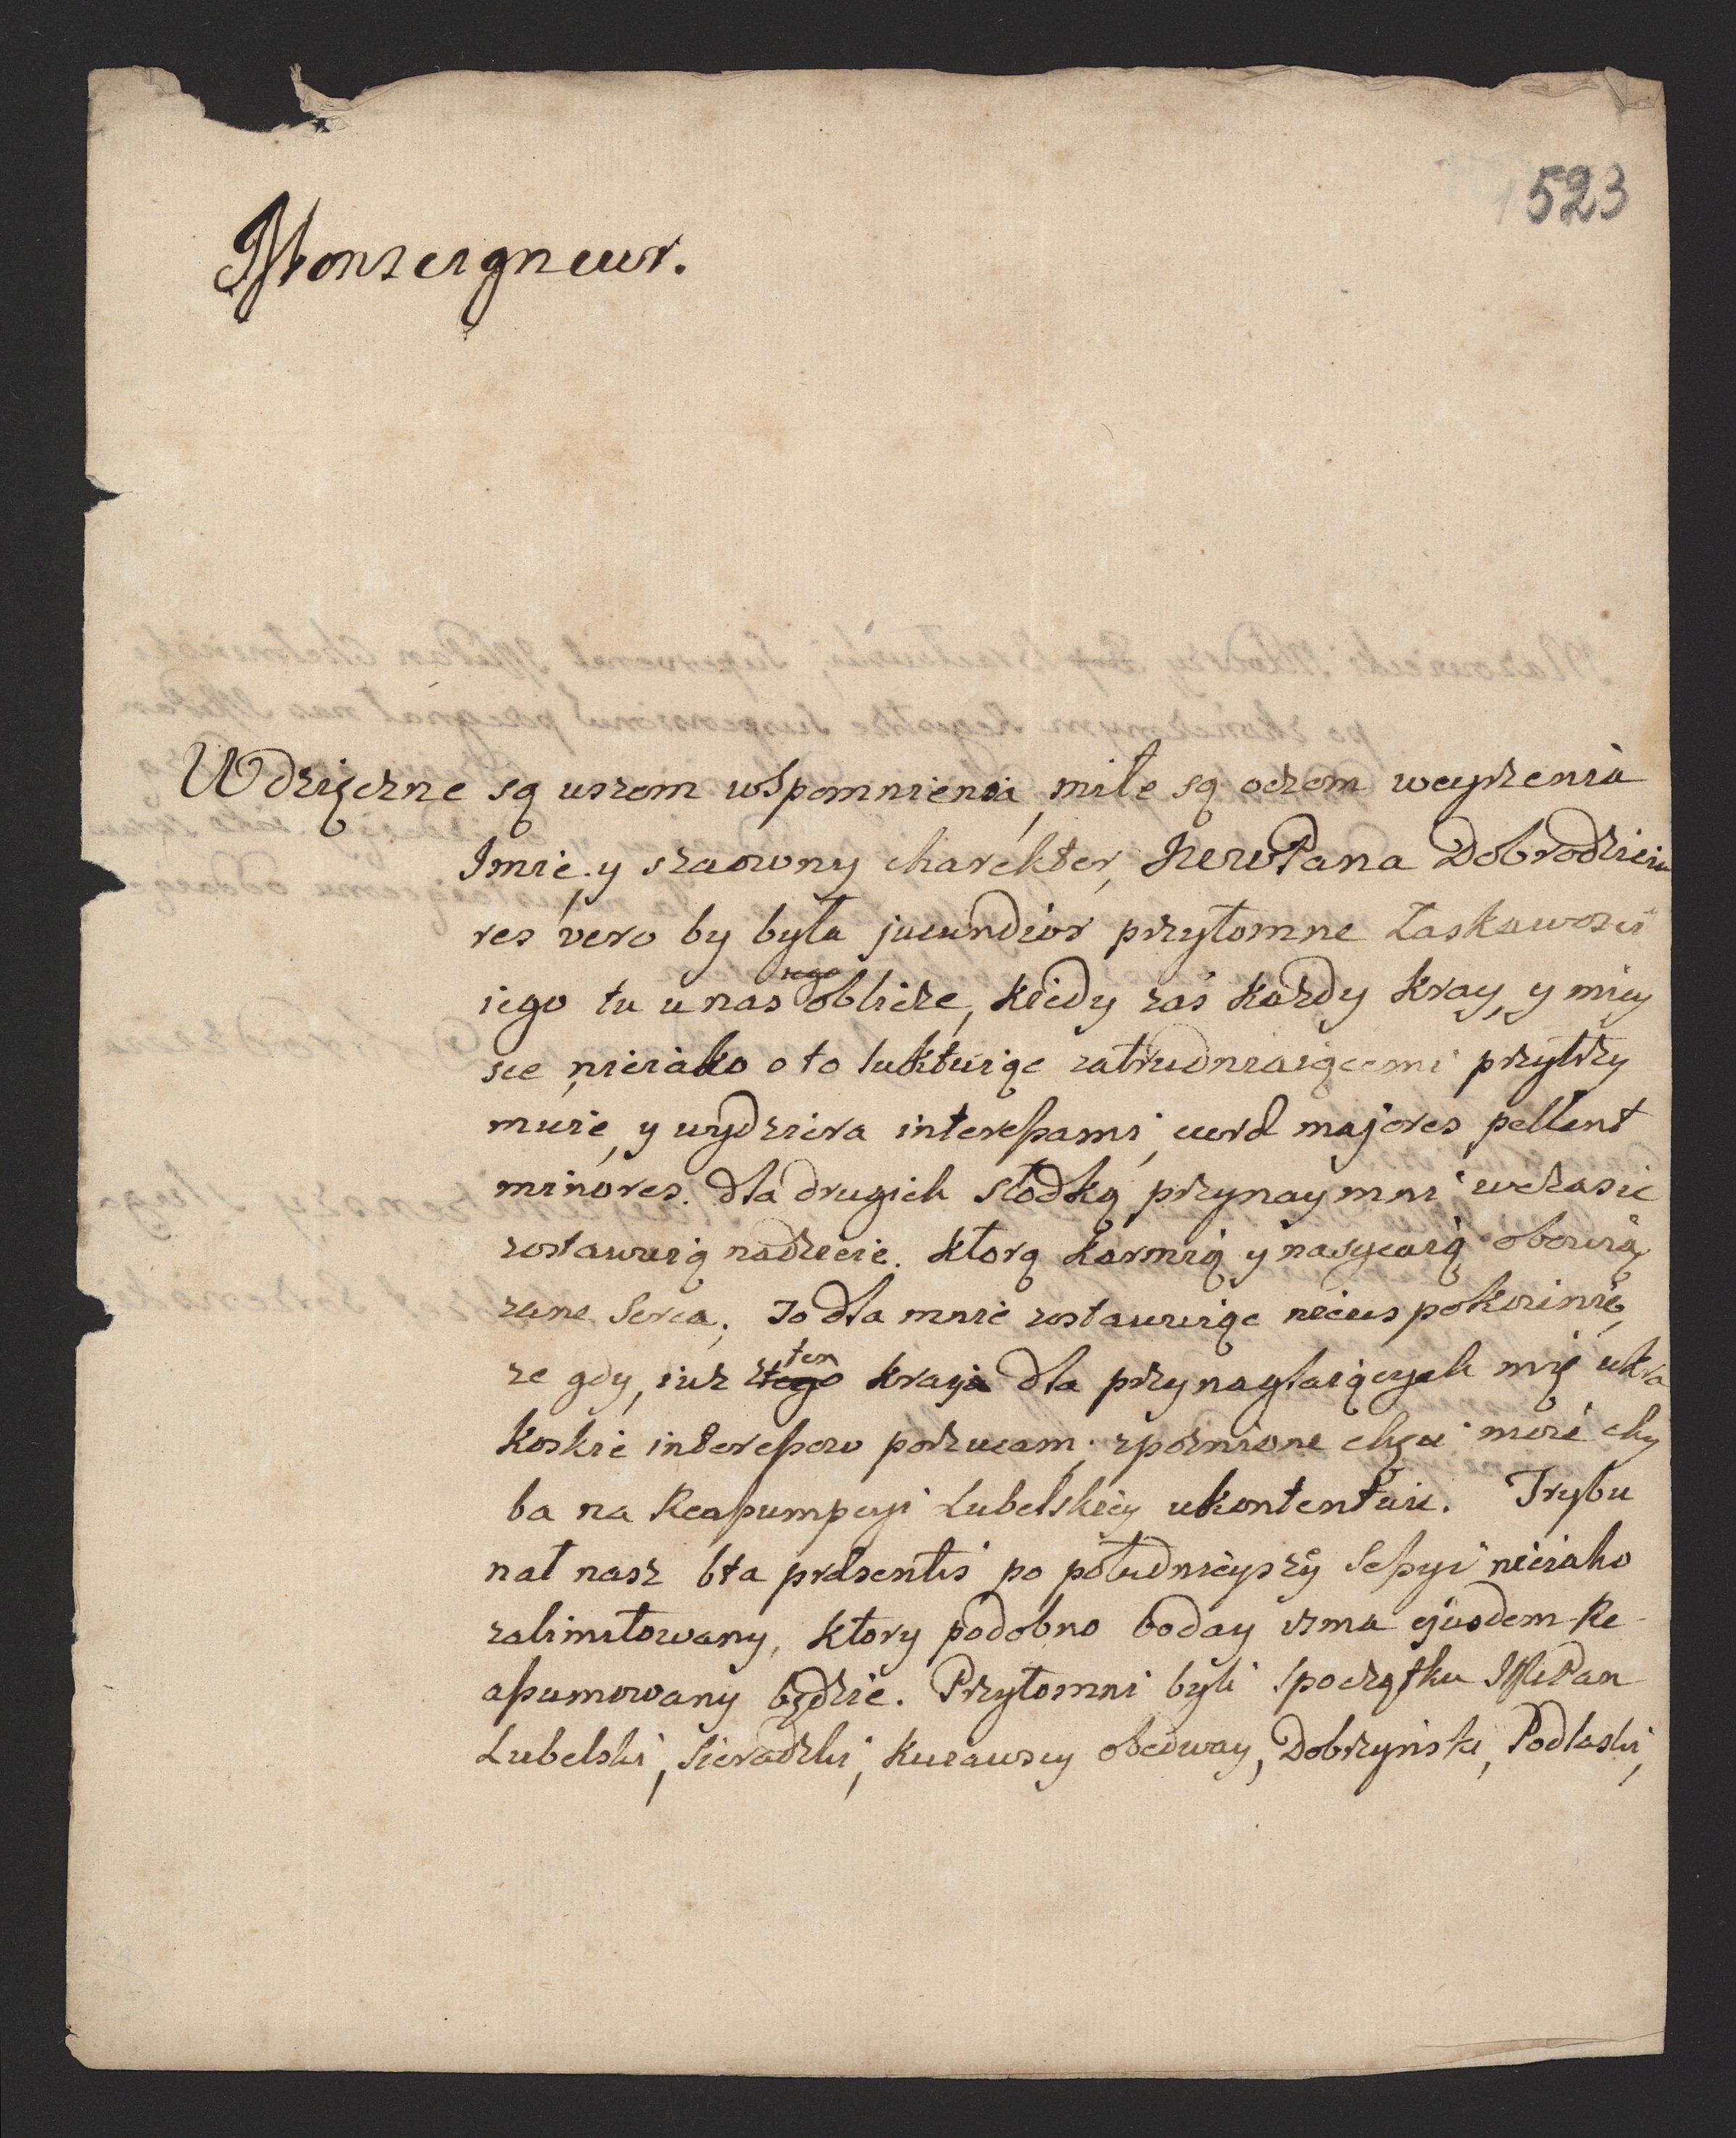 523
Monseigneur.
Wdzięczne są uszom wspomnienia, miłe są oczom weyrzenia
Imie, y szaowny charekter, JWWPana Dobrodzieia
res vero by była jucundior przytomne Łaskawości
iego tu u nas oblicze, kiedy zaś każdy kray, y miey
sce nieiako o to luktuiąc zatrudniaiącemi przytrzy
muie, y wydziera interessami, curæ majores pellunt
minores. dla drugich słodką przynaymni wczasie
zostawuią nadzieie. ktorą karmią y nasycaią obowią
zane Serca, To dla mnie zostawuiąc nieuspokoienie,
ze gdy, iuz ten kray dla przynaglaiących mię ukra
koskie interessow porzucam, zpoznione chęci moie chy
ba na Reassumpcyi Lubelskiey ukontentuie. Trybu
nał nasz 6ta præsentis po południeyszy Sessyi nieiako
zalimitowany, ktory podobno boday 13ma ejusdem Re-
assumowany będzie. Przytomni byli Spoczątku JMPan
Lubelski, Sieradzki, Kuiawscy obedway, Dobrzynski, Podlaski,